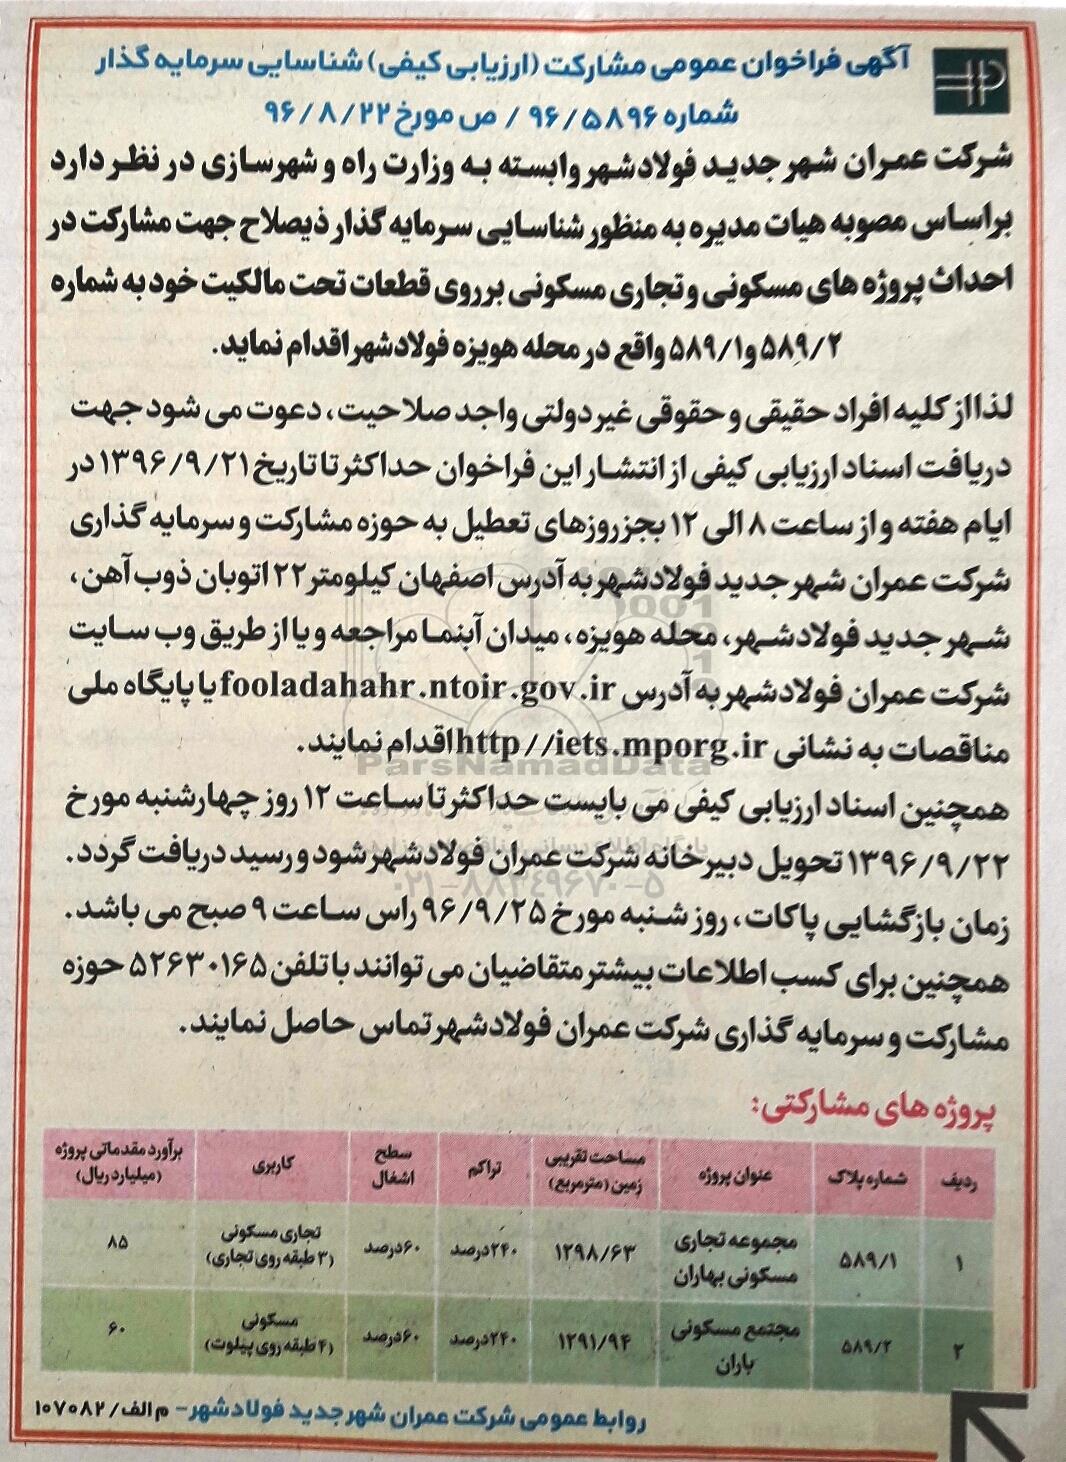 آگهی فراخوان عمومی مشارکت (ارزیابی کیفی) شناسایی سرمایه گذار
شماره ۹۶/۵۸۹۶ / ص مورخ ۹۶/۸/۲۲
شرکت عمران شهر جدید فولادشهر وابسته به وزارت راه و شهرسازی در نظر دارد
براساس مصوبه هیات مدیره به منظور شناسایی سرمایه گذار ذیصلاح جهت مشارکت در
احداث پروژه های مسکونی و تجاری مسکونی برروی قطعات تحت مالکیت خود به شماره
۵۸۹/۲ و ۵۸۹/۱ واقع در محله هویزه فولادشهر اقدام نماید.
لذا از کلیه افراد حقیقی و حقوقی غیردولتی واجد صلاحیت، دعوت می شود جهت
دریافت اسناد ارزیابی کیفی از انتشار این فراخوان حداکثر تا تاریخ ۱۳۹۶/۹/۲۱ در
ایام هفته و از ساعت ۸ الی ۱۲ بجز روزهای تعطیل به حوزه مشارکت و سرمایه گذاری
شرکت عمران شهر جدید فولادشهر به آدرس اصفهان کیلومتر ۲۲ اتوبان ذوب آهن،
شهر جدید فولادشهر، محله هویزه، میدان آبنما مراجعه و یا از طریق وب سایت
شرکت عمران فولادشهر به آدرس fooladahahr.ntoir.gov.ir یا پایگاه ملی
مناقصات به نشانی http//iets.mporg.ir اقدام نمایند.
ParsNamadData
همچنین اسناد ارزیابی کیفی می بایست حداکثر تا ساعت ۱۲ روز چهارشنبه مورخ
۱۳۹۶/۹/۲۲ تحویل دبیرخانه شرکت عمران فولادشهر شود و رسید دریافت گردد.
۰۲۱-۸۸۳۴۹۶۷۰-۵
زمان بازگشایی پاکات، روز شنبه مورخ ۹۶/۹/۲۵ راس ساعت ۹ صبح می باشد.
همچنین برای کسب اطلاعات بیشتر متقاضیان می توانند با تلفن ۵۲۶۳۰۱۶۵ حوزه
مشارکت و سرمایه گذاری شرکت عمران فولادشهر تماس حاصل نمایند.
پروژه های مشارکتی:
ردیف شماره پلاک عنوان پروژه مساحت تقریبی زمین (مترمربع) تراکم سطح اشغال کاربری برآورد مقدماتی پروژه (میلیارد ریال)
۱ ۵۸۹/۱ مجموعه تجاری مسکونی بهاران ۱۲۹۸/۶۳ ۲۴۰درصد ۶۰درصد تجاری مسکونی (۳ طبقه روی تجاری) ۸۵
۲ ۵۸۹/۲ مجتمع مسکونی باران ۱۲۹۱/۹۴ ۲۴۰درصد ۶۰درصد مسکونی (۴ طبقه روی پیلوت) ۶۰
روابط عمومی شرکت عمران شهر جدید فولادشهر- م الف/ ۱۰۷۰۸۲